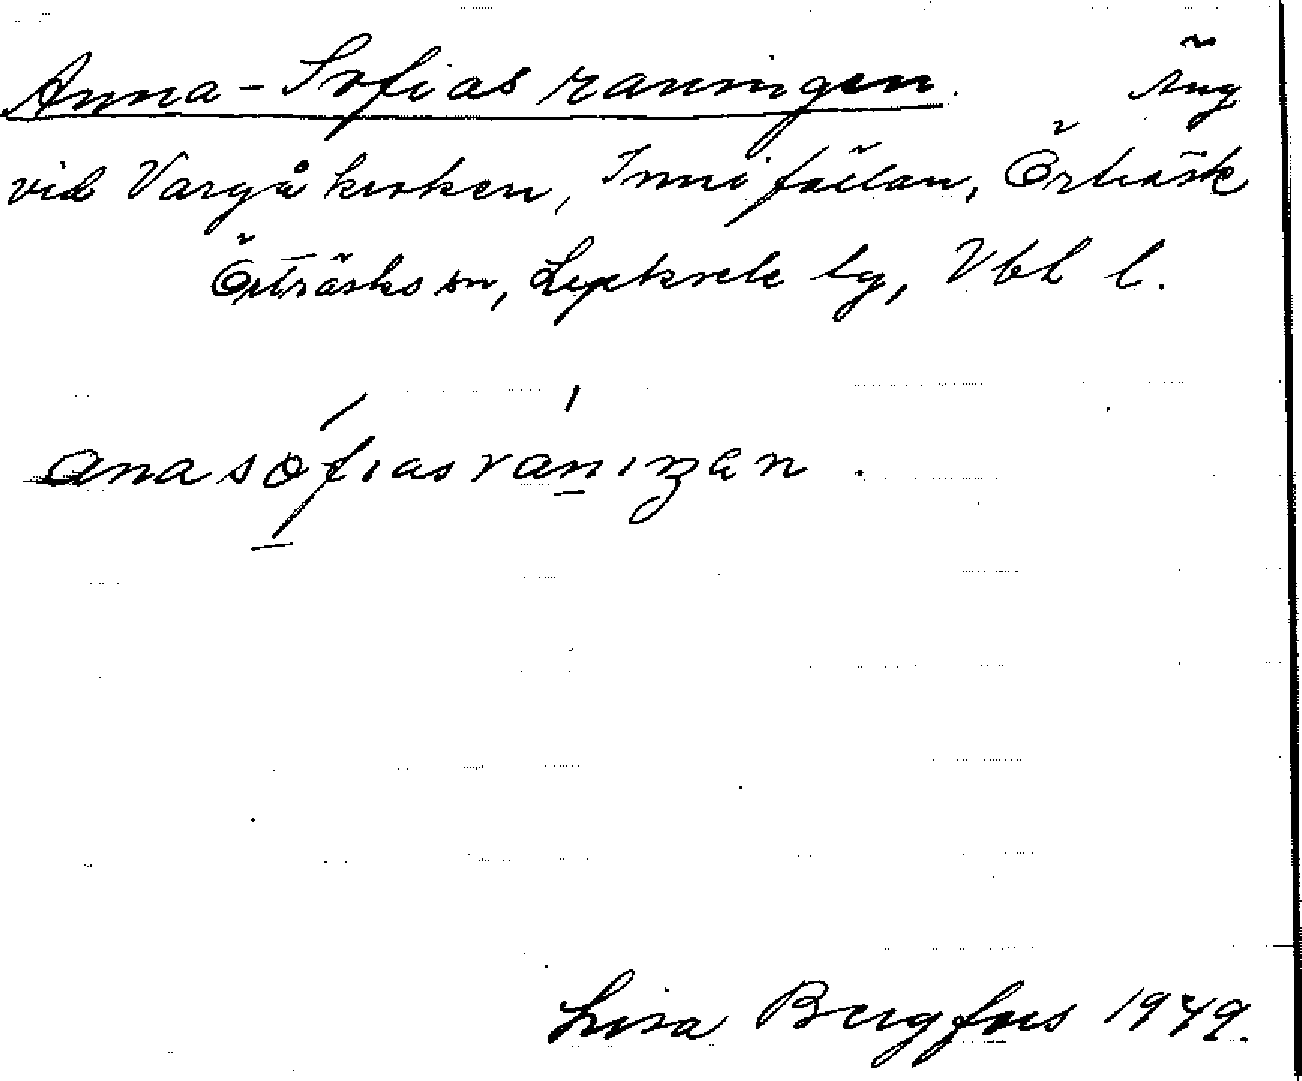 Anna-Sofias ranningen. Äng
vid Vargåkroken, Innifällan, Örträsk
Örträsks sn, Lycksele lg, Vbt l.
anasofiasranıŋan.
Lisa Bergfors 1949.